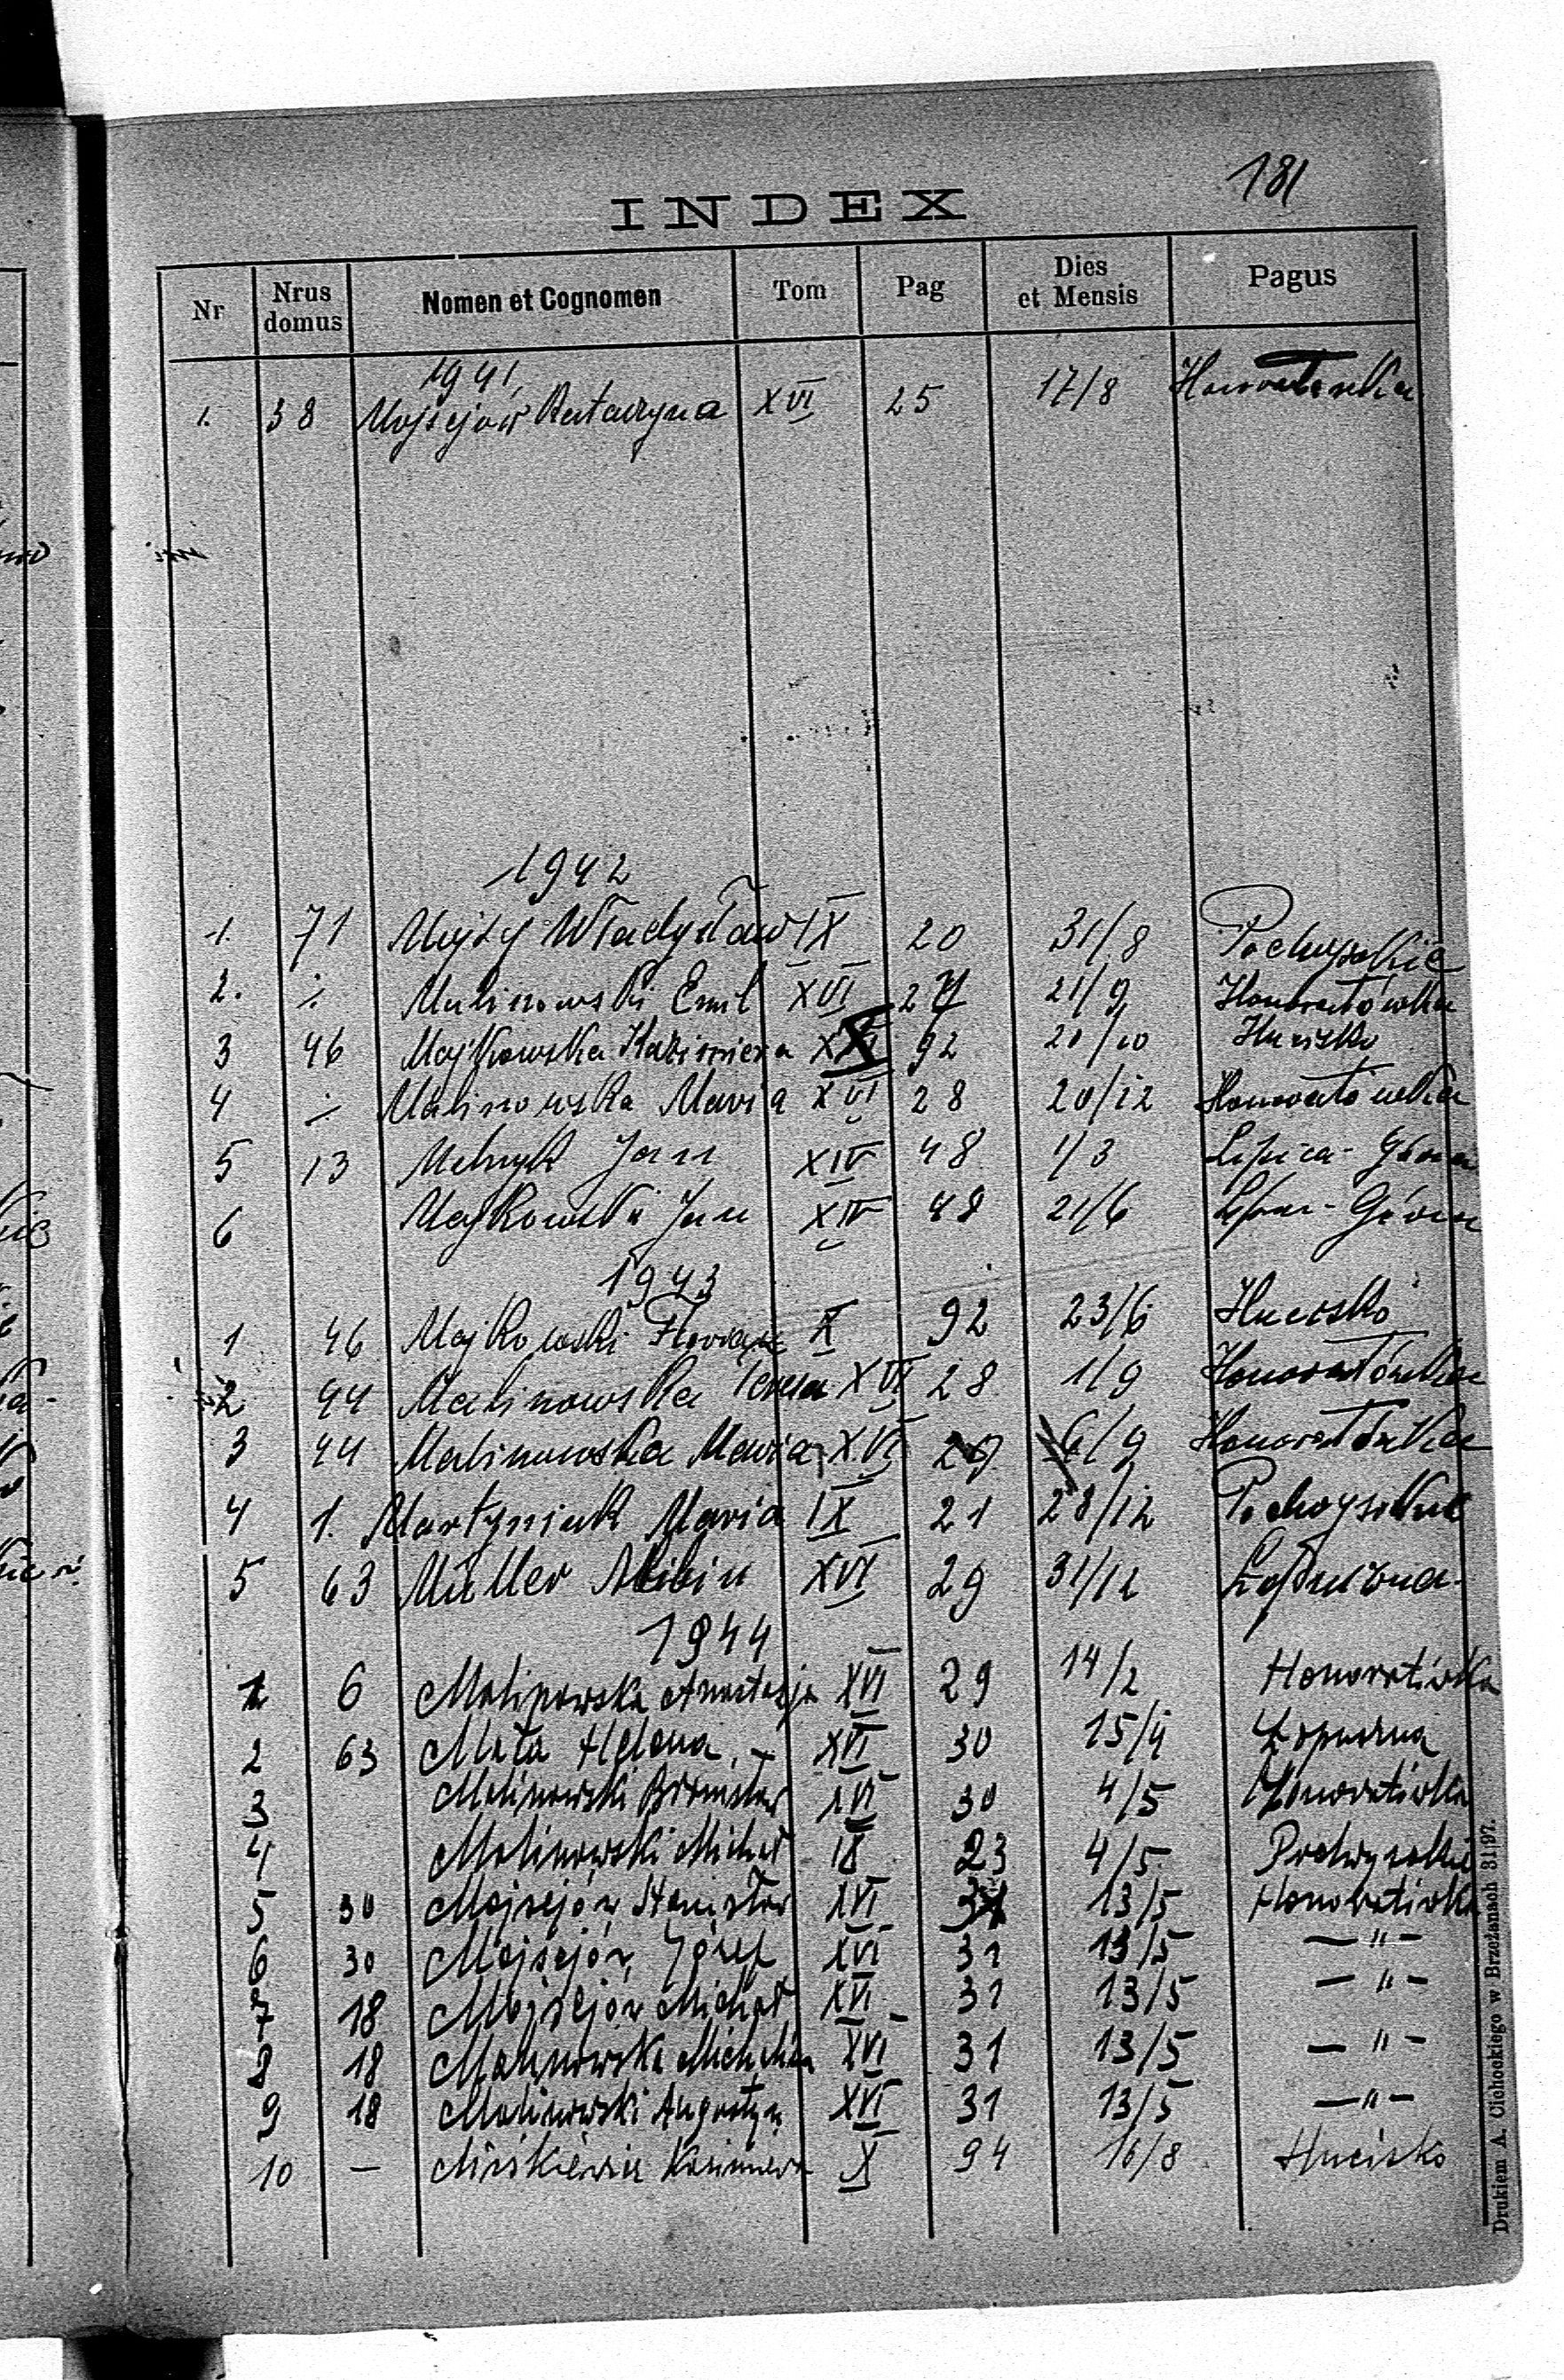 181
INDEX
Nr Nrus domus Nomen et Cognomen Tom Pag Dies et Mensis Pagus
1941
1. 38 Mojsejow Katarzyna XVI 25 17/8
1942
1. 71 Mojsej Władysław IX 20 31/8 Podwysokie
2. Malinowski Emil XVI 21/9 Honoratówka
3 46 Majkowska Kazimiera X 92 20/10 Hucisko
4 Malinowska Maria XVI 28 20/12 Honoratówka
5 13 Melnyk Jan XIV 48 1/3 Lipica-Górna
6 Majkowski Jan XIV 48 21/6 Górna
1943
1 46 Majkowski X 92 23/6 Hucisko
2 44 Malinowska Teresa XVI 28 1/9 Honoratówka
3 44 Malinowska Maria XVI 6/9 Honoratówka
4 1. Martyniuk Maria IX 21 28/12 Podwysokie
5 63 Müller Albin XVI 29 31/12 Łopuszna
1944
1 6 Malinowska Anastazja XVI 29 14/2 Honoratówka
2 63 Mała Helena XVI 30 15/4 Łopuszna
3 Malinowski Bronisław XVI 30 4/5 Honoratówka
4 Malinowski Michał IX 23 4/5 Podwysokie
5 30 Mojsejów Stanisław XVI 13/5 Honoratówka
6 30 Mojsejów Józef XVI 31 13/5 — " —
7 18 Mojsejów Michał XVI 31 13/5 — " —
8 18 Malinowska Michalina XVI 31 13/5 — " —
9 18 Malinowski Augustyn XVI 31 13/5 — " —
10 — Miśkiewicz Kazimiera X 94 16/8 Hucisko
Drukiem A. Cichockiego w Brzeżanach 31|97.